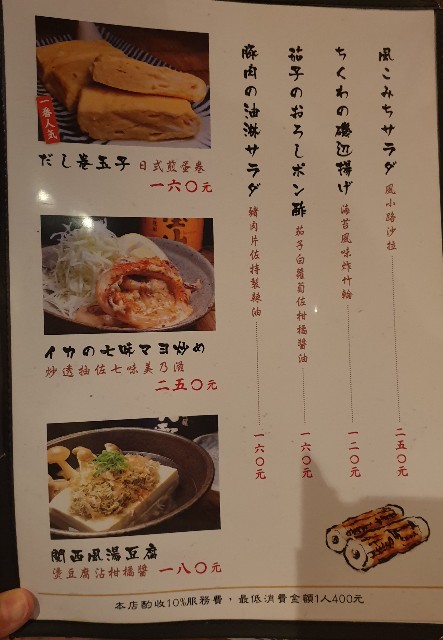 風こみちサラダ 風小路沙拉 二五〇元
ちくわの磯辺揚げ 海苔風味炸竹輪 一二〇元
茄子のおろしポン酢 茄子白蘿蔔佐柑橘醬油 一六〇元
豚肉の油淋サラダ 豬肉片佐特製辣油 一六〇元
一番人気
だし巻玉子 日式煎蛋卷
一六〇元
イカの七味マヨ炒め
炒透抽佐七味美乃滋
二五〇元
関西風湯豆腐
燙豆腐沾柑橘醬 一八〇元
本店酌收10%服務費，最低消費金額1人400元